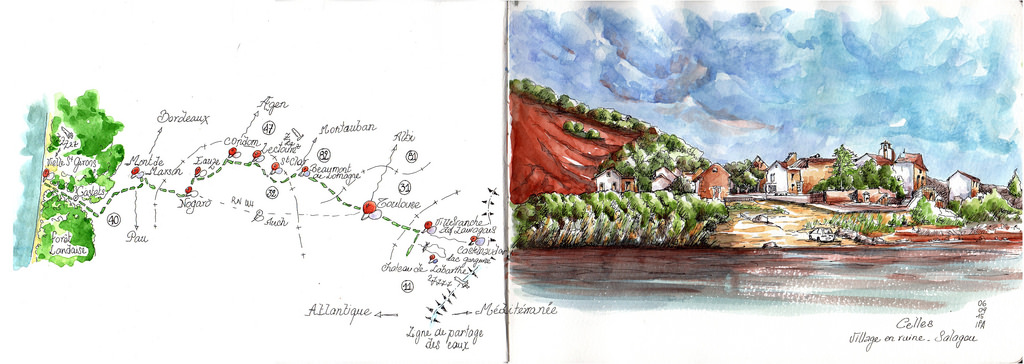 Bordeaux
Agen
47
Montauban
Albi
Condom
Lectoure
St Clar
82
81
Vielle St Girons
Mont de
Marsan
Eauze
Beaumont
de Lomagne
31
Castets
32
Nogaro
Toulouse
40
Auch
Pau
Forêt
Landaise
Villefranche
de Lauragais
Chateau de Labarthe
11
Atlantique
Méditérranée
Ligne de partage
des eaux
Celles
Village en ruine - Salagou
06
09
15